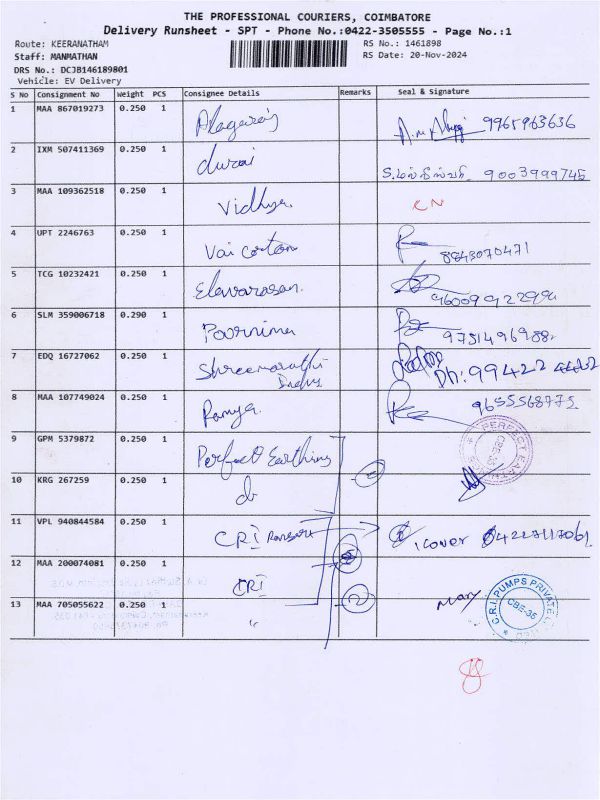 THE PROFESSIONAL COURIERS, COIMBATORE
Delivery Runsheet - SPT - Phone No.:0422-3505555 - Page No.:1
Route: KEERANATHAM
RS No.: 1461898
Staff: MANMATHAN
RS Date: 20-Nov-2024
DRS No.: DCJB146189801
Vehicle: EV Delivery
S No Consignment No Weight PCS Consignee Details Remarks Seal & Signature
1 MAA 867019273 0.250 1 Alagaraj 9965963636
2 IXM 507411369 0.250 1 durai 9003999745
3 MAA 109362518 0.250 1 Vidhya
4 UPT 2246763 0.250 1 Vai cotton 8843070471
5 TCG 10232421 0.250 1 Elavarasan
6 SLM 359006718 0.290 1 Pournima
7 EDQ 16727062 0.250 1
8 MAA 107749024 0.250 1 Ramya 9655568775
9 GPM 5379872 0.250 1 Perfect Earthing
10 KRG 267259 0.250 1 do
PERFECT EARTHING CBE-35
11 VPL 940844584 0.250 1 CRI 1 cover
12 MAA 200074081 0.250 1 CRI
13 MAA 705055622 0.250 1 "
2
Mary
C.R.I. PUMPS PRIVATE CBE-35